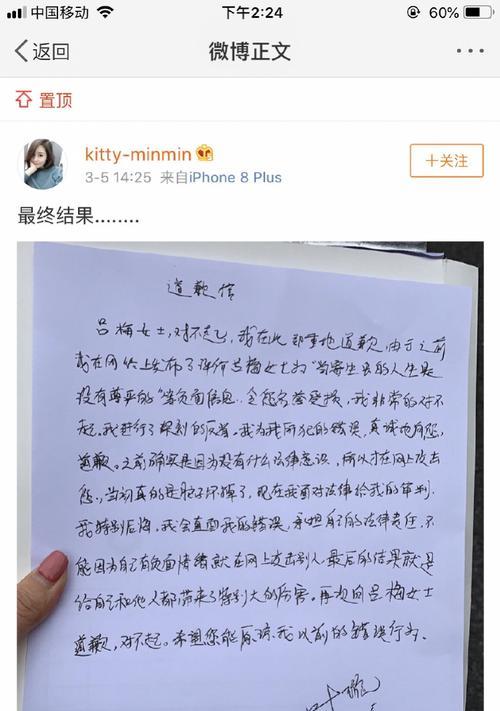 中国移动 下午2:24 60%
返回 微博正文
置顶
kitty-minmin
3-5 14:25 来自iPhone 8 Plus
+关注
最终结果........
道歉信
吕梅女士,对不起,我在此郑重地道歉,由于之前
我在网络上发布了评价吕梅女士为“当寄生虫的人生是
没有尊严的”等负面信息,令您名誉受损,我非常的对不
起。我进行了深刻的反省。我为我所犯的错误,真诚地向您
道歉。之前确实是因为没有什么法律意识,所以才在网上攻击
您,当初真的是脑子坏掉了,现在我面对法律给我的审判
我特别后悔,我会直面我的错误,承担自己的法律责任,不
能因为自己有负面情绪就在网上攻击别人,最后的结果就是
给自己和他人都带来了特别大的伤害。再次向吕梅女士
道歉,对不起。希望您能原谅我以前的错误行为。